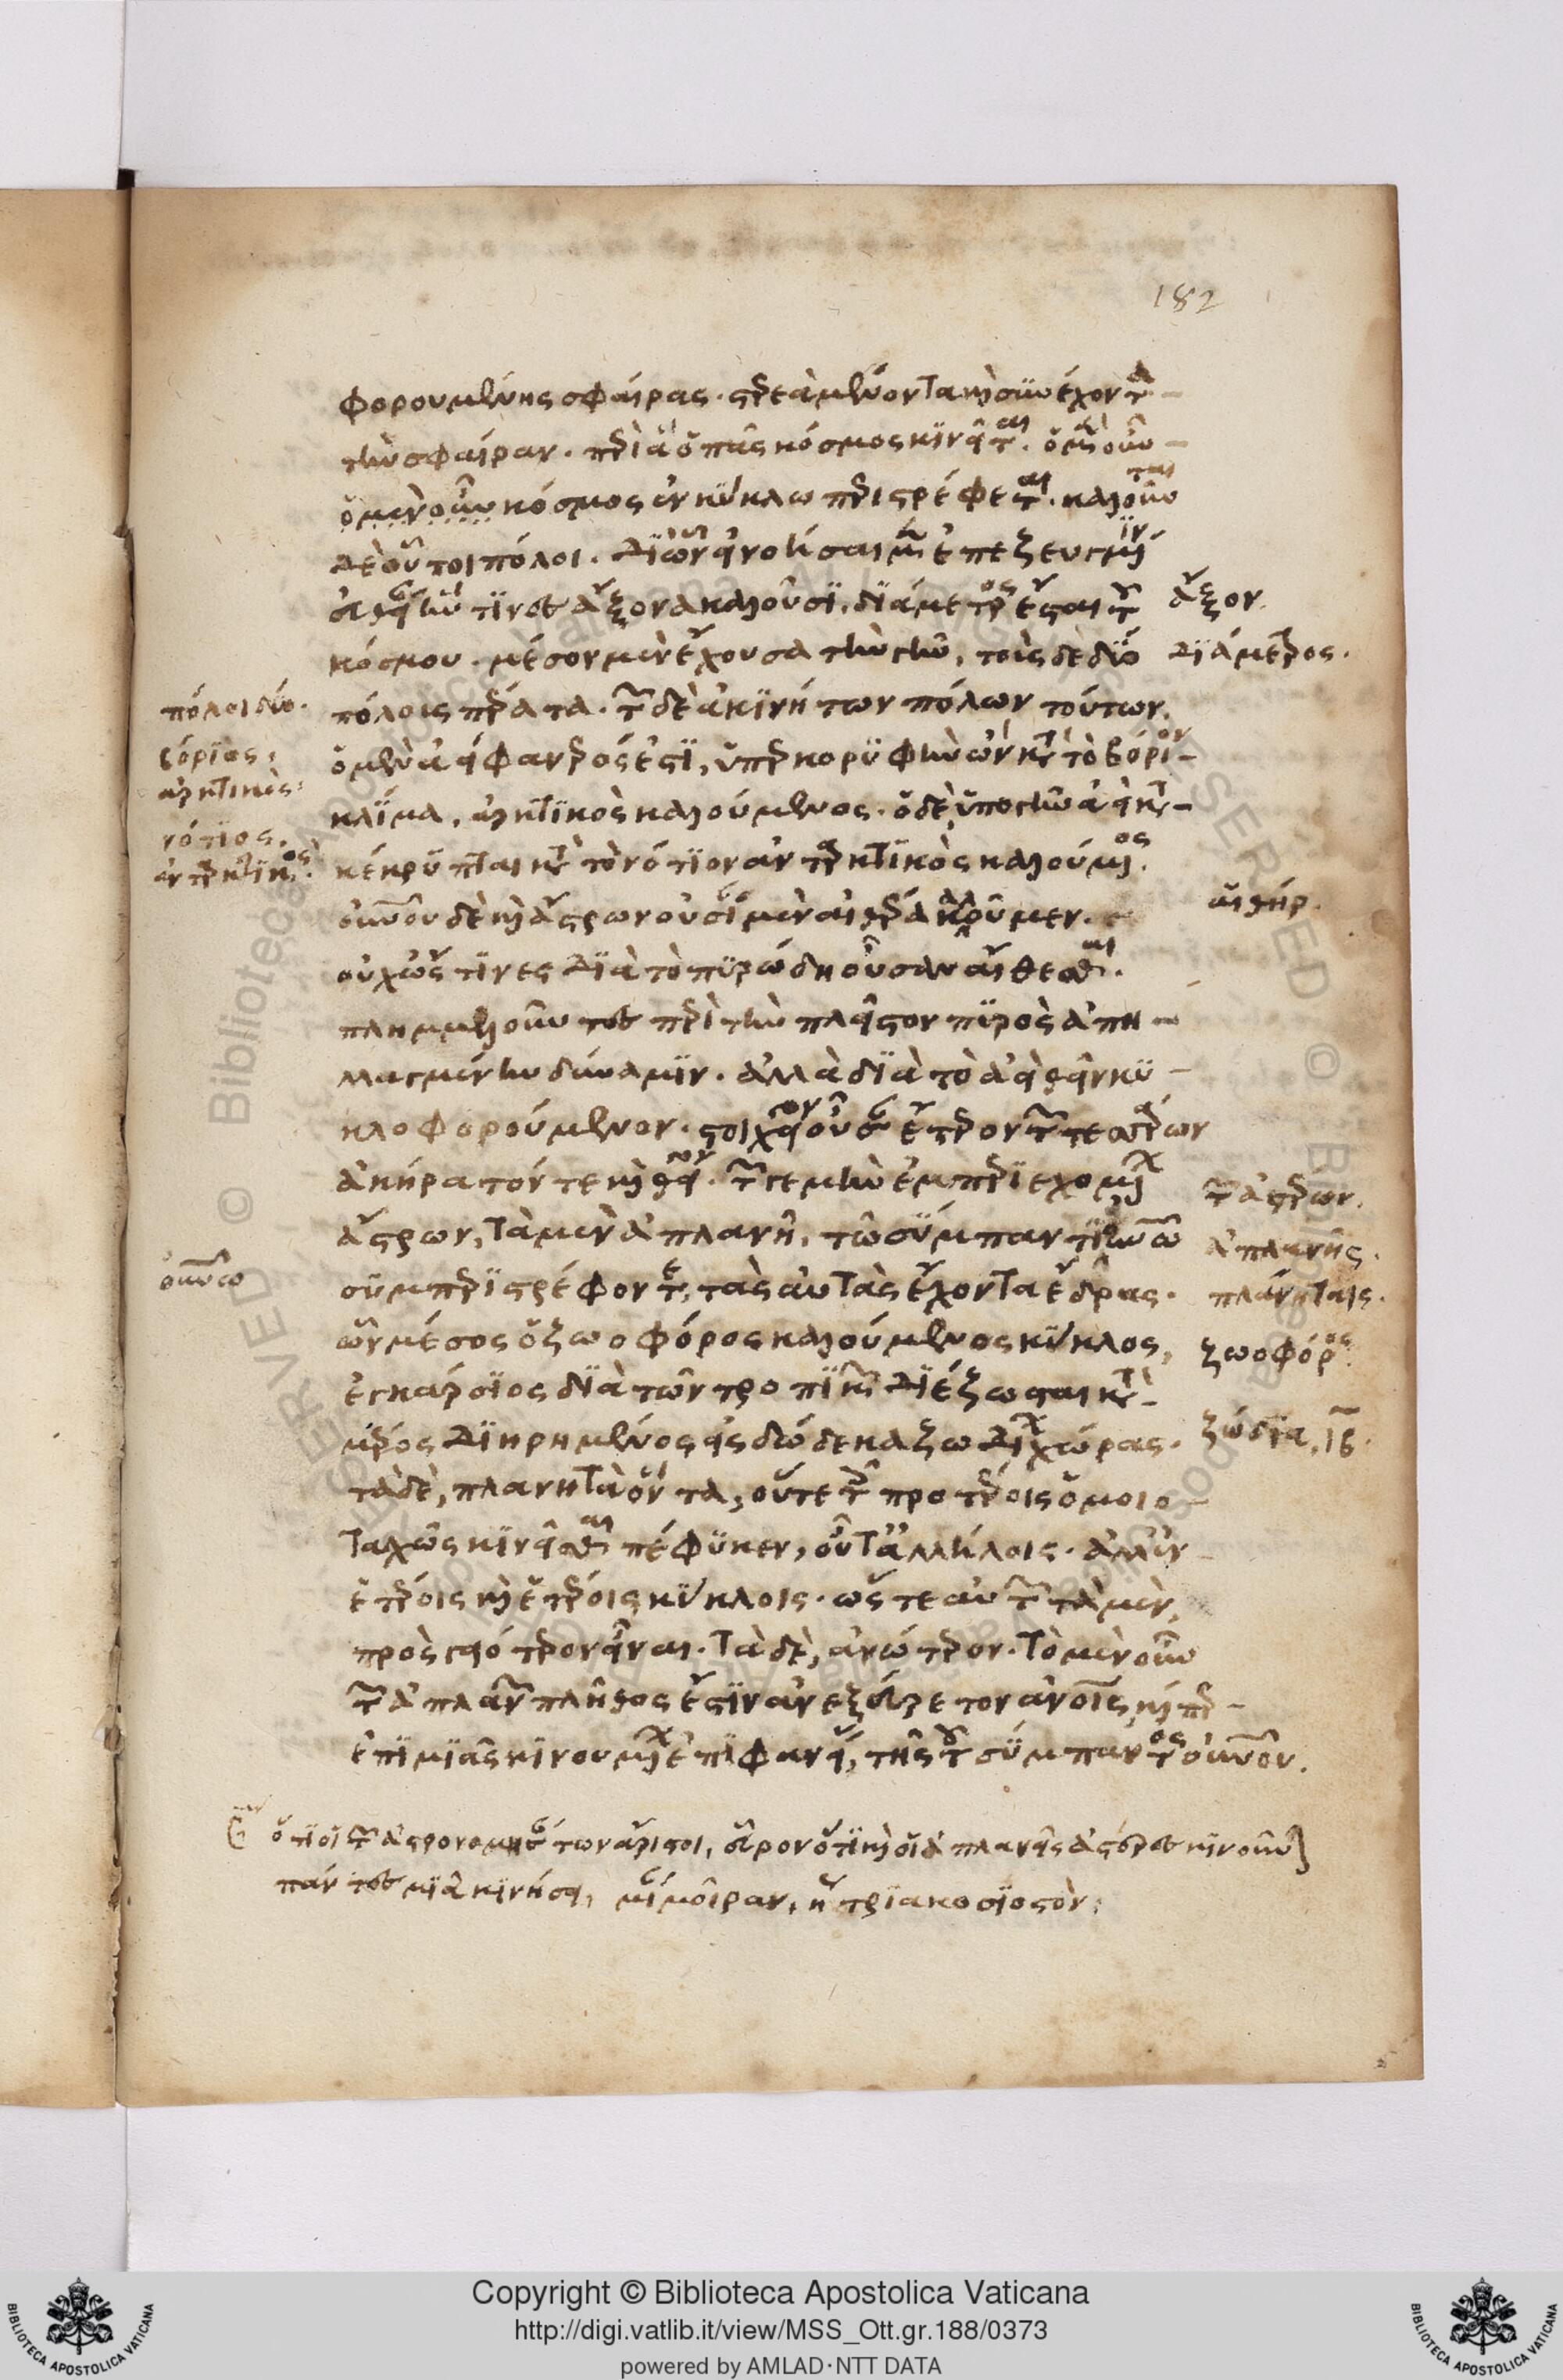 182
φορουμένης σφαίρας. στερεὰ μένοντα καὶ συνέχοντα
τὴν σφαῖραν. περὶ ἃ ὁ πᾶς κόσμος κινεῖται.
ὁ μὲν οὖν κόσμος ἐν κύκλω περιστρέφεται. καλοῦνται
δὲ οὗτοι πόλοι. δι ὧν εἰ νοήσαιμεν ἐπεζευγμένην
εὐθεῖαν ἥν τινες ἄξονα καλοῦσι. διάμετρος ἔσται τοῦ
ἄξον.
κόσμου. μέσον μὲν ἔχουσα τὴν γῆν, τοὺς δὲ δύο
διάμετρος.
πόλοι δύο.
πόλοις πέρατα. τῶν δὲ ἀκινήτων πόλων τούτων.
βόρϊος,
ὁ μὲν ἀεὶ φανερός ἐστι, ὑπὲρ κορυφὴν ὢν κατὰ τὸ βόριον
ἀρκτικὸς
κλίμα, ἀρκτικὸς καλούμενος. ὁ δὲ, ὑπο γῆν ἀεὶ κατα
νότϊος.
ἀνταρκτικός.
κέκρυπται κατὰ τὸ νότιον ἀνταρκτικὸς καλούμενος.
οὐρανοῦ δὲ καὶ ἄστρων οὐσίαν μὲν αἰθέρα καλοῦμεν.
αἰθήρ.
οὐχ ὥς τινες διὰ τὸ πυρώδη οὖσαν αἴθεσθαι.
πλημμελοῦντες περὶ τὴν πλεῖστον πυρὸς ἀπη
λλαγμένην δύναμιν. ἀλλὰ διὰ τὸ ἀεὶ θεῖν κυ
κλοφορούμενον. στοιχεῖον οὖσαν ἕτερον τῶν τεσσάρων
ἀκήρατόν τε καὶ θεῖον. τῶν γε μὴν ἐμπεριεχομένων
τῶν ἀστέρων.
ἄστρων, τὰ μὲν ἀπλανῆ, τῷ σύμπαντι οὐρανῶ
ἀπλανῆς.
οὐρανῶ
συμπεριστρέφονται, τὰς αὐτὰς ἔχοντα ἕδρας.
πλάνηταις.
ὧν μέσος ὁ ζωοφόρος καλούμενος κύκλος,
ζωοφόρος.
ἐγκάρσιος διὰ τῶν τροπικῶν διέζωσται κατὰ
μέρος διηρημένος εἰς δώδεκα ζωδίων χώρας.
ζώδια, ιβ.
τὰ δὲ, πλανητὰ ὄντα, οὔτε τοῖς προτέροις ὁμοιο
ταχῶς κινεῖσθαι πέφυκεν, οὔτ ἀλλήλοις. ἀλλ ἐν
ἑτέροις καὶ ἑτέροις κύκλοις. ὥστε αὐτῶν τὰ μὲν,
προσγειότερον εἶναι. τὰ δὲ, ἀνώτερον. τὸ μὲν οὖν
τῶν ἀπλανῶν πλῆθος ἐστιν ἀνεξεύρετον ἀνθρώποις, καίπερ
ἐπὶ μιᾶς κινουμένων ἐπιφανείας, τῆς τοῦ σύμπαντος οὐρανοῦ.
ὅτι οἱ τῶν ἀστρονομησάντων ἄριστοι, εὗρον ὅτι καὶ οἱ ἀπλανεῖς ἀστέρες κινοῦνται
πάντες μιᾶ κινήσει, μίαν μοῖραν, ἢ τριακοσιοστὸν
Copyright © Biblioteca Apostolica Vaticana
http://digi.vatlib.it/view/MSS_Ott.gr.188/0373
powered by AMLAD·NTT DATA